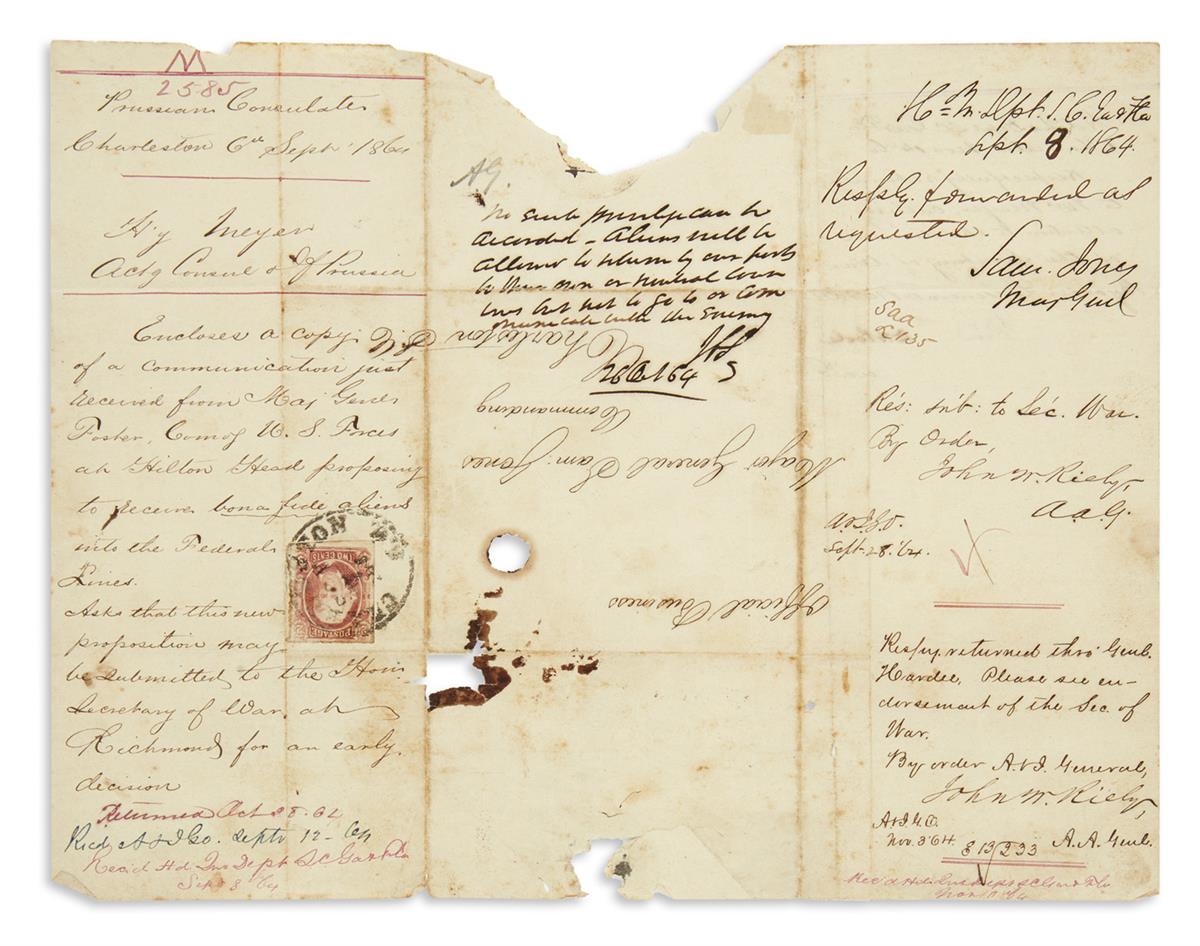 M
2585
Prussian Consulate
Charleston 6th Sept 1864
Hy Meyer
Actg Consul of Prussia
Encloses a copy
of a communication just
received from Maj Genl
Foster, Comdg U. S. Forces
at Hilton Head proposing
to receive bona fide aliens
into the Federal
Lines.
Asks that this new
proposition may
be submitted to the Hon:
Secretary of War, at
Richmond for an early
decision
Returned Oct 28. 64
Recd A & I Go. Septr 12-64
Recd Hd Qrs Dept SC Ga & Fla
Sept 8 64
TWO CENTS
POSTAGE
AG.
No such privilege can be
accorded - Aliens will be
allowed to return by our ports
to their own or neutral coun
tries but not to go to or com
municate with the enemy
JAS
26 Oct 64 S
Official Business
Major General Sam: Jones
Commanding
Charleston
Hd Qrs Dpt. S. C. Ga & Fla
Sept. 8. 1864.
Respfy. forwarded as
requested.
Sam. Jones
Maj Genl
Res: sub: to Sec. War.
By Order,
John W. Riely,
A.A.G.
A & I.G.O.
Sept. 28. '64.
Respy. returned thro' Genl.
Hardee. Please see en-
dorsement of the Sec. of
War.
By order A. & I. General,
John W. Riely,
A & I G. O.
Nov. 3 '64.
A. A. Genl.
Rec'd Hd Qrs Dept S C Ga & Fla